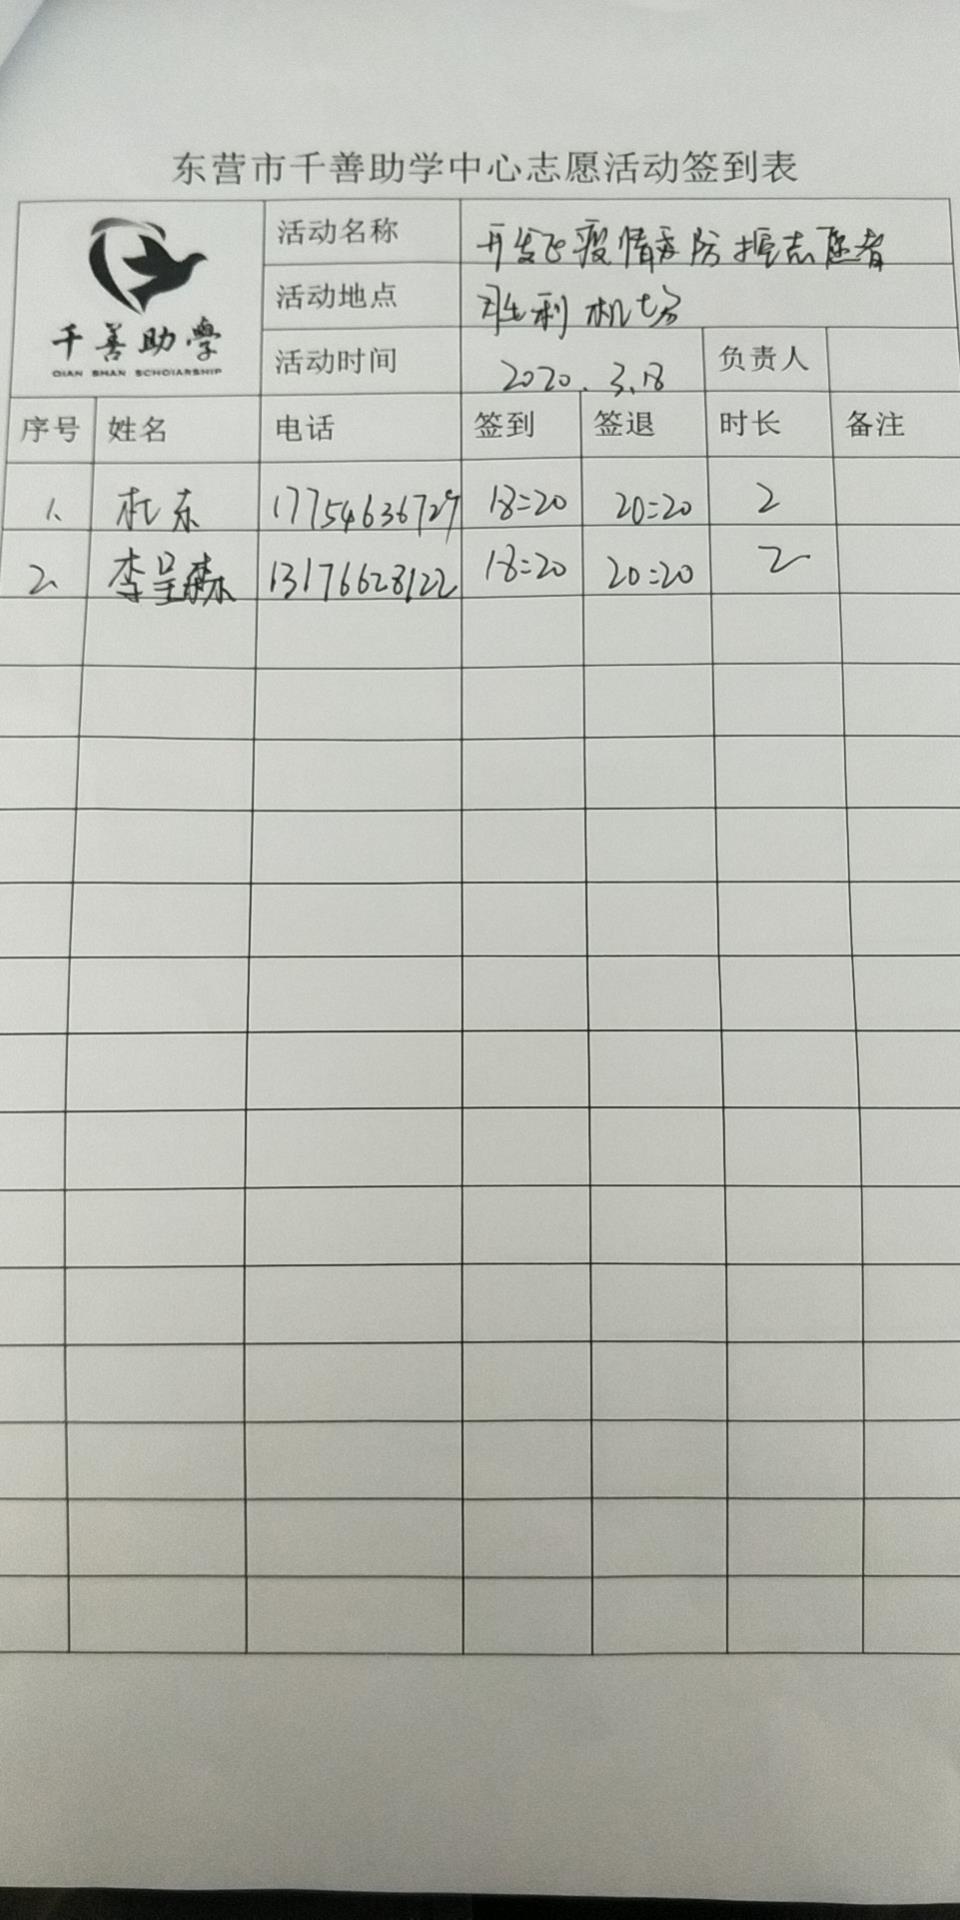 东营市千善助学中心志愿活动签到表
千善助學
QIAN SHAN SCHOLARSHIP
活动名称 开发区疫情防控志愿者
活动地点 胜利机场
活动时间 2020.3.18 负责人
序号 姓名 电话 签到 签退 时长 备注
1、 杜东 17754636729 18:20 20:20 2
2、 李呈森 13176628122 18:20 20:20 2